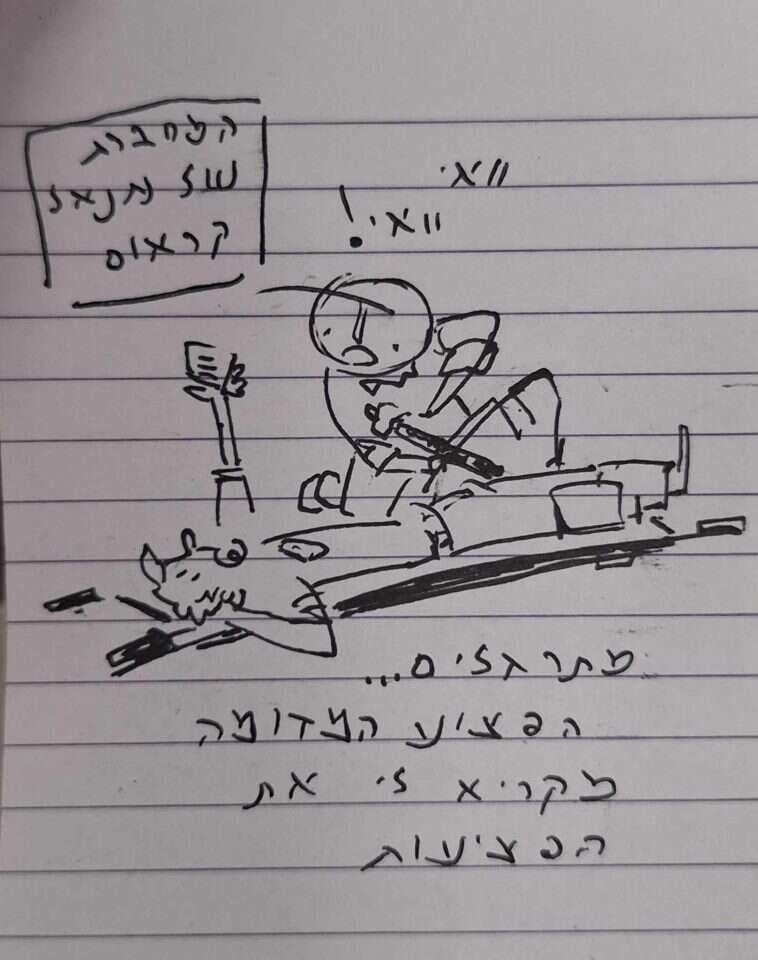 המחברת
של נתנאל
קראוס
וואי
וואי!
מתרגלים...
הפציע המדומה
מקריא לי את
הפציעות